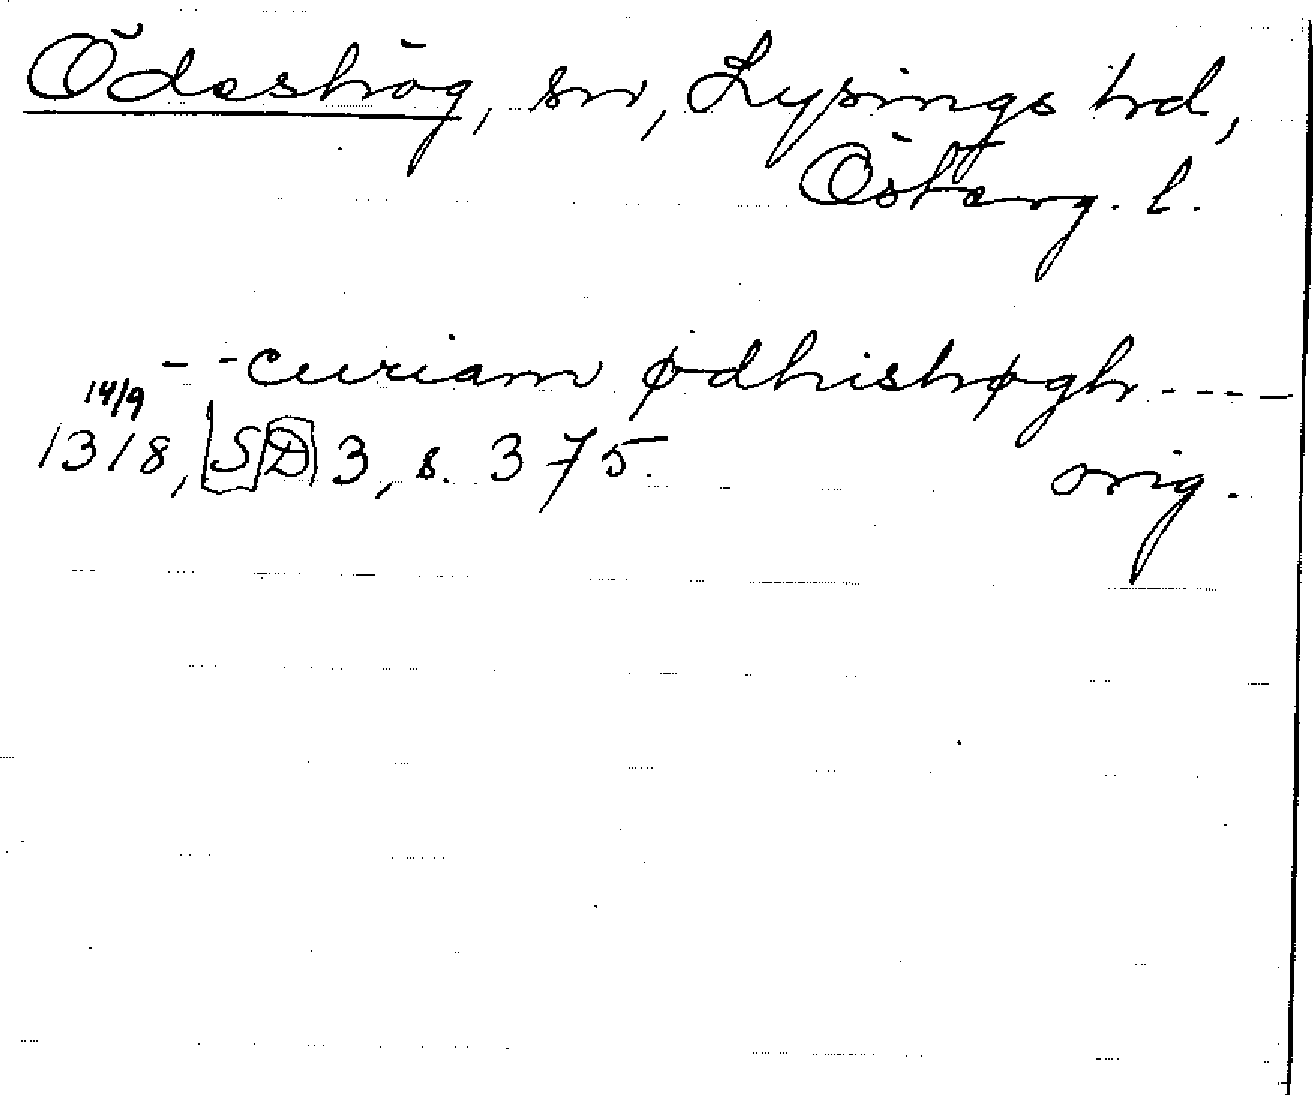 Ödeshög, sn, Lysings hrd,
Österg. l.
- - curiam ødhishøgh - - - -
14/9
1318, SD 3, s. 375. orig.